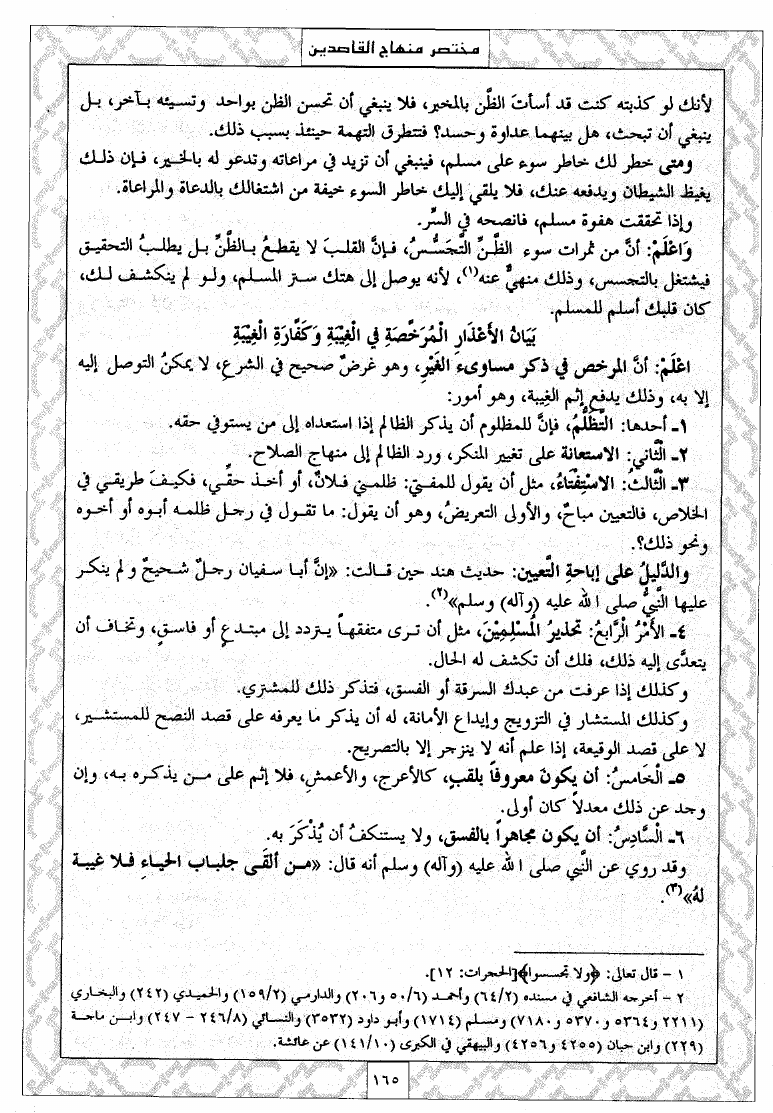 مختصر منهاج القاصدين
لأنك لو كذبته كنت قد أسأتَ الظَّن بالمخبر، فلا ينبغي أن تحسن الظن بواحد وتسيئه بـآخر، بل
ينبغي أن تبحث، هل بينهما عداوة وحسد؟ فتتطرق التهمة حينئذ بسبب ذلك.
ومتى خطر لك خاطر سوء على مسلم، فينبغي أن تزيد في مراعاته وتدعو له بالخير، فإن ذلك
يغيظ الشيطان ويدفعه عنك، فلا يلقي إليك خاطر السوء خيفة من اشتغالك بالدعاة والمراعاة.
وإذا تحققت هفوة مسلم، فانصحه في السِّر.
وَاعْلَمْ: أنَّ من ثمرات سوء الظنِّ التَّجَسُّسُ، فإنَّ القلبَ لا يقطعُ بالظَّنِّ بل يطلبُ التحقيق
فيشتغل بالتجسس، وذلك منهيٌّ عنه(١)، لأنه يوصل إلى هتك ستر المسلم، ولو لم ينكشف لك،
كان قلبك أسلم للمسلم.
بَيَانُ الأَعْذَارِ الْمُرَخِّصَةِ فِي الْغِيْبَةِ وَكَفَّارَةِ الْغِيْبَةِ
اعْلَمْ: أنَّ المرخص في ذكر مساوىء الغَيْرِ، وهو غرضٌ صحيح في الشرع، لا يمكنُ التوصل إليه
إلا به، وذلك يدفع إثم الغِيبة، وهو أمور:
١ـ أحدها: التَّظَلُّمُ، فإنَّ للمظلوم أن يذكر الظالم إذا استعداه إلى من يستوفي حقه.
٢ـ الثَّاني: الاستعانة على تغيير المنكر، ورد الظالم إلى منهاج الصلاح.
٣ـ الثَّالثُ: الاسْتِفْتَاءُ، مثل أن يقول للمفتي: ظلمني فلانٌ، أو أخذ حقِّي، فكيفَ طريقي في
الخلاص، فالتعيين مباحٌ، والأولى التعريضُ، وهو أن يقول: ما تقول في رجل ظلمه أبوه أو أخوه
ونحو ذلك؟.
والدَّليلُ على إباحةِ التَّعيين: حديث هند حين قالت: «إنَّ أبا سفيان رجلٌ شحيحٌ ولم ينكر
عليها النَّبيُّ صلى الله عليه (وآله) وسلم»(٢).
٤ـ الأمْرُ الْرَّابعُ: تحذيرُ الْمُسْلِمِيْنَ، مثل أن ترى متفقهاً يتردد إلى مبتدعٍ أو فاسقٍ، وتخاف أن
يتعدَّى إليه ذلك، فلك أن تكشف له الحال.
وكذلك إذا عرفت من عبدك السرقة أو الفسق، فتذكر ذلك للمشتري.
وكذلك المستشار في التزويج وإيداع الأمانة، له أن يذكر ما يعرفه على قصد النصح للمستشير،
لا على قصد الوقيعة، إذا علم أنه لا ينزجر إلا بالتصريح.
٥ـ الْخَامسُ: أن يكونَ معروفاً بلقبٍ، كالأعرج، والأعمش، فلا إثم على من يذكره به، وإن
وجد عن ذلك معدلاً كان أولى.
٦ـ الْسَّادِسُ: أن يكون مجاهراً بالفسق، ولا يستنكفُ أن يُذْكَرَ به.
وقد روي عن النَّبي صلى الله عليه (وآله) وسلم أنه قال: «من ألقَى جلباب الحياءِ فلا غيبة
لهُ»(٣).
١ - قال تعالى: ﴿ولا تجسسوا﴾[الحجرات: ١٢].
٢ - أخرجه الشافعي في مسنده (٦٤/٢) وأحمد (٥٠/٦ و٢٠٦) والدارمي (١٥٩/٢) والحميدي (٢٤٢) والبخاري
(٢٢١١ و٥٣٦٤ و٥٣٧٠ و٧١٨٠) ومسلم (١٧١٤) وأبو داود (٣٥٣٢) والنسائي (٢٤٦/٨ - ٢٤٧) وابن ماجة
(٢٢٩) وابن حبان (٤٢٥٥ و٤٢٥٦) والبيهقي في الكبرى (١٤١/١٠) عن عائشة.
١٦٥